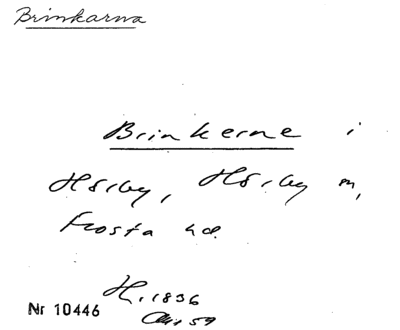 Brinkarna
Brinkerne i
Hörby, Hörby sn,
Frosta hd.
H. 1836
Nr 10446
59